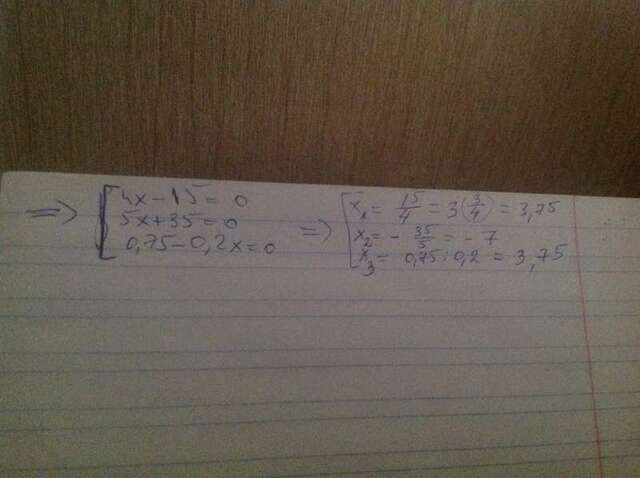 => [ 4x - 15 = 0
5x + 35 = 0
0,75 - 0,2x = 0
=> [ x₁ = 15/4 = 3(3/4) = 3,75
x₂ = - 35/5 = - 7
x₃ = 0,75 : 0,2 = 3,75